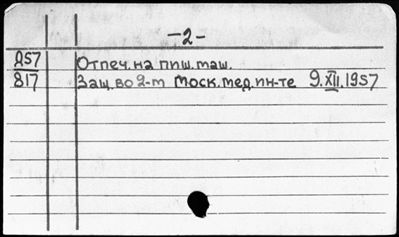 -2-
Д57 Отпеч. на пиш. маш.
817 Защ. во 2-м Моск. мед. ин-те 9.XII.1957